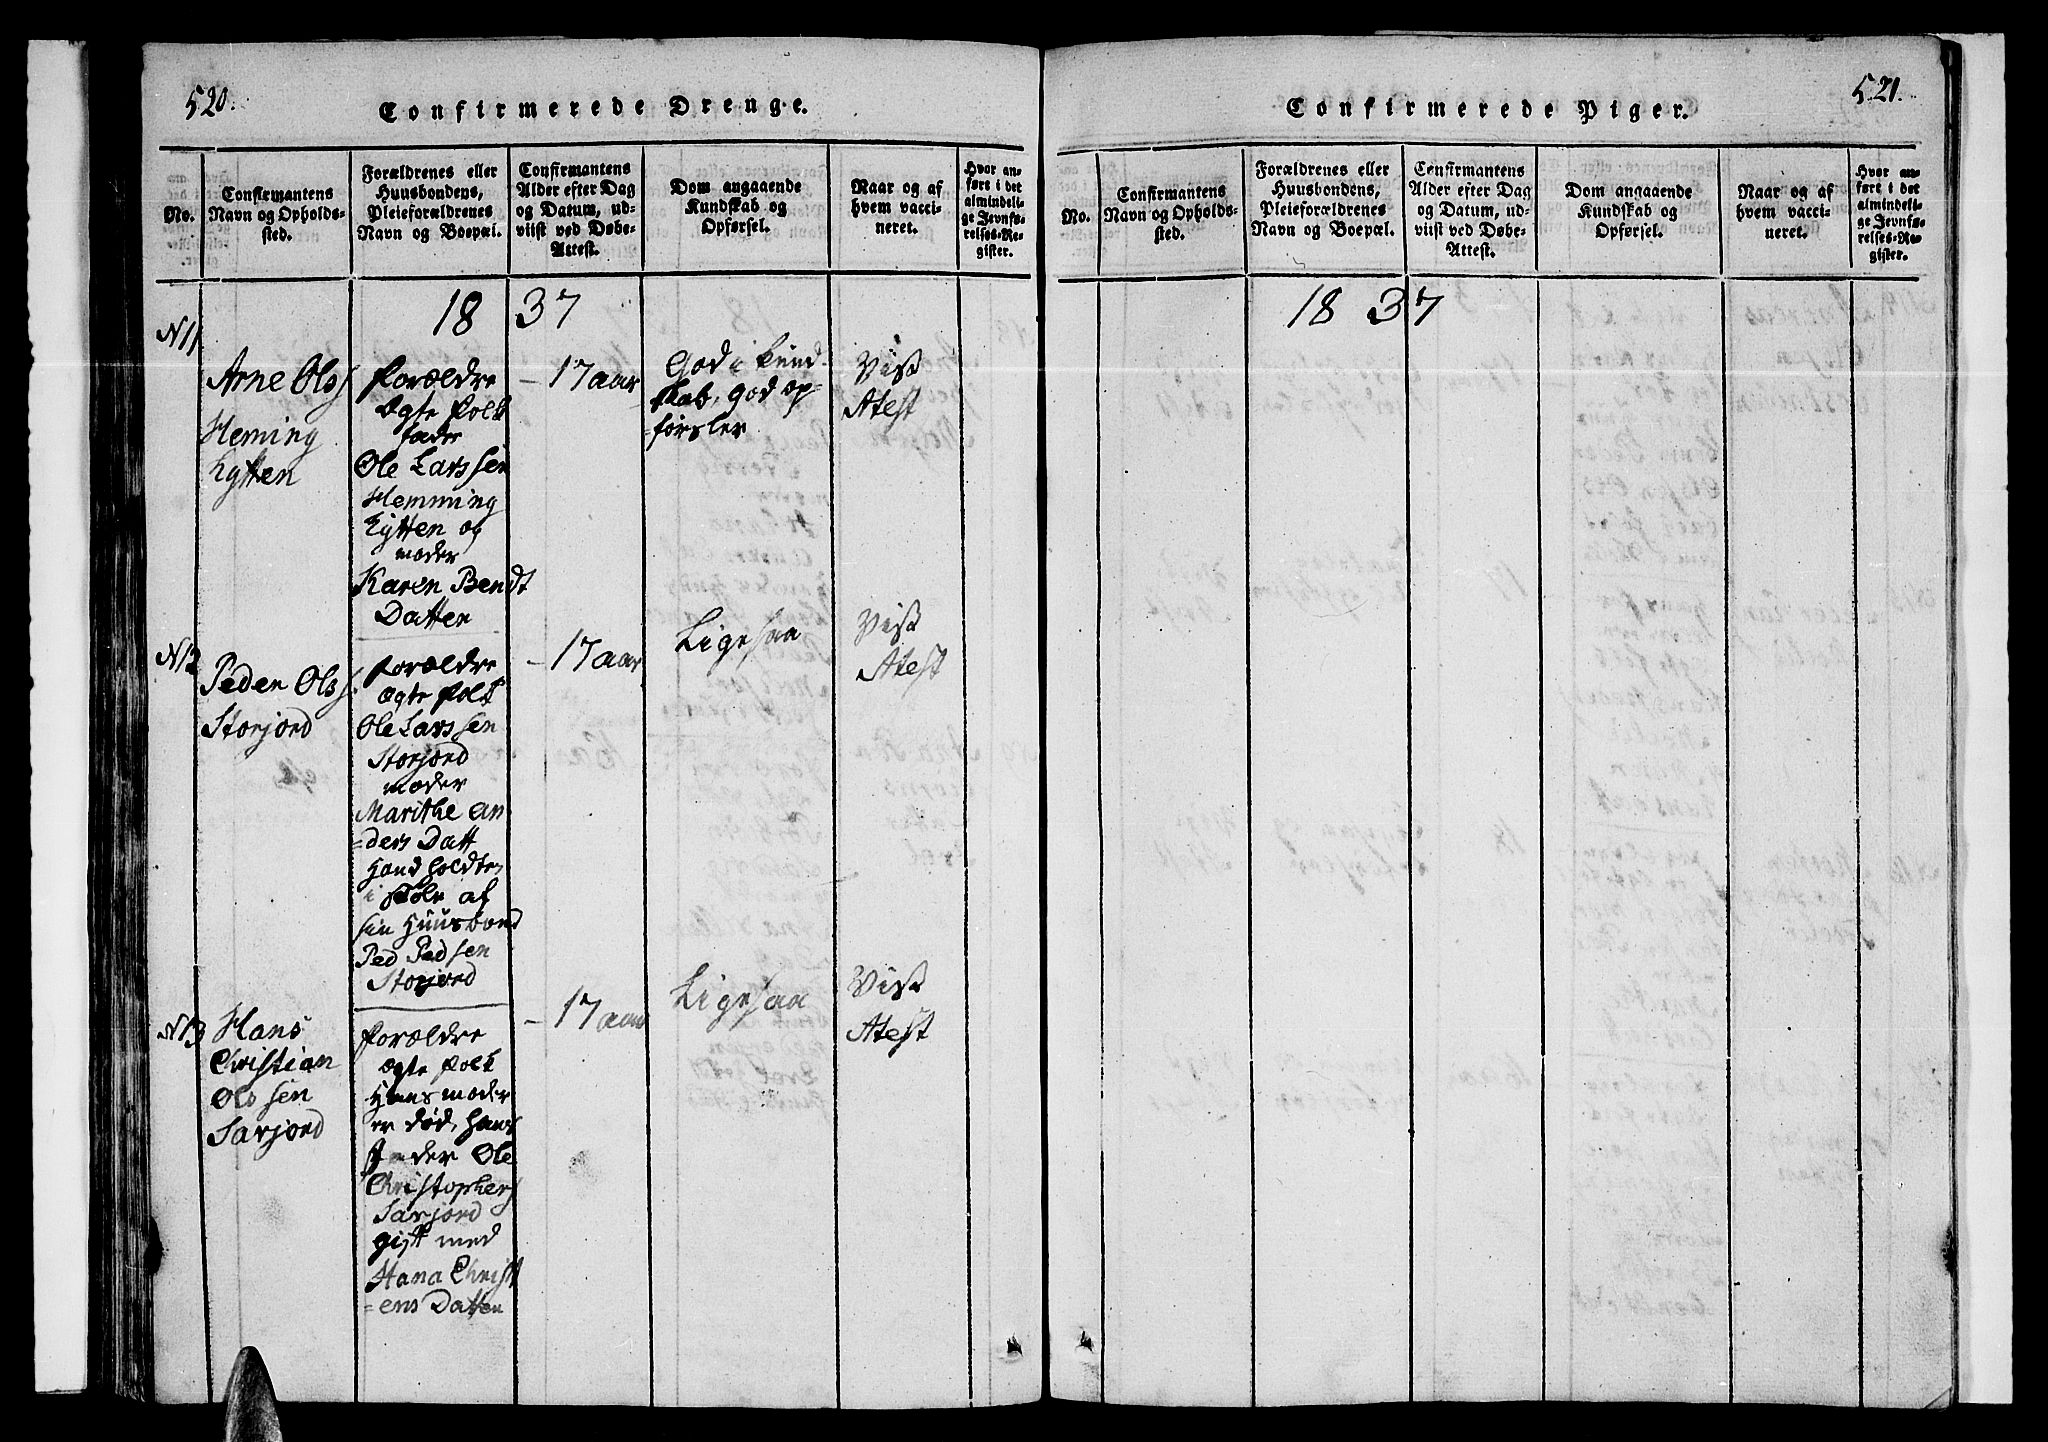 520.
Confirmerede Drenge.
No.
Confirmantens
Navn og Opholds-
sted.
Forældrenes eller
Huusbondens,
Pleieforældrenes
Navn og Boepæl.
Confirmantens
Alder efter Dag
og Datum, ud-
viist ved Døbe-
Attest.
Dom angaaende
Kundskab og
Opførsel.
Naar og af
hvem vacci-
neret.
Hvor an-
ført i det
almindeli-
ge Jevnfø-
relses-Re-
gister.
18 37
N11
Arne Olss
Heming
Hytten
forældre
Ægte folk
fader
Ole Larssen
Hemming
Hytten og
moder
Karen Bendt
Datten
– 17 aar
God i kund-
skab, god op-
=førsler
Vist
Atest
N12
Peder Olss.
Storjord
forældre
ægte folk
Ole Larssen
Storjord
moder
Marithe an
=ders Datt
Hand holdtes
i skole af
sin Huusbond
Ped Pedsen
Storjord
– 17 aar
Ligesaa
Vist
Atest
N13
Hans
Christian
Olssen
Sarjord
forældre
ægte folk
Hans moder
er død, hans
fader Ole
Christophers
Sarjord
gift med
Hana Christ
=ens Datten
– 17 aar
Ligesaa
Vist
Atest
521.
Confirmerede Piger.
No.
Confirmantens
Navn og Opholds-
sted.
Forældrenes eller
Huusbondens,
Pleieforældrenes
Navn og Boepæl.
Confirmantens
Alder efter Dag
og Datum, ud-
viist ved Døbe-
Attest.
Dom angaaende
Kundskab og
Opførsel.
Naar og af
hvem vacci-
neret.
Hvor an-
ført i det
almindeli-
ge Jevnfø-
relses-Re-
gister.
18 37